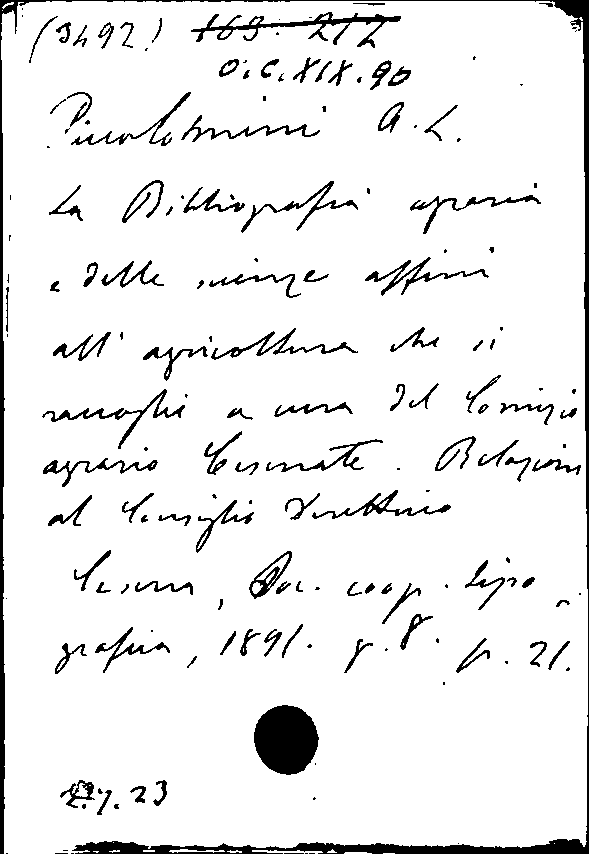 (3492) 163. 212
O.C.XIX.90
Piccolomini A. L.
La Bibliografia agraria
e delle scienze affini
all' agricoltura che si
raccoglie a cura del Comizio
agrario Cesenate. Relazione
al Consiglio Direttivo
Cesena, Soc. coop. tipo-
grafica, 1891. g. 8. p. 21.
7. 23